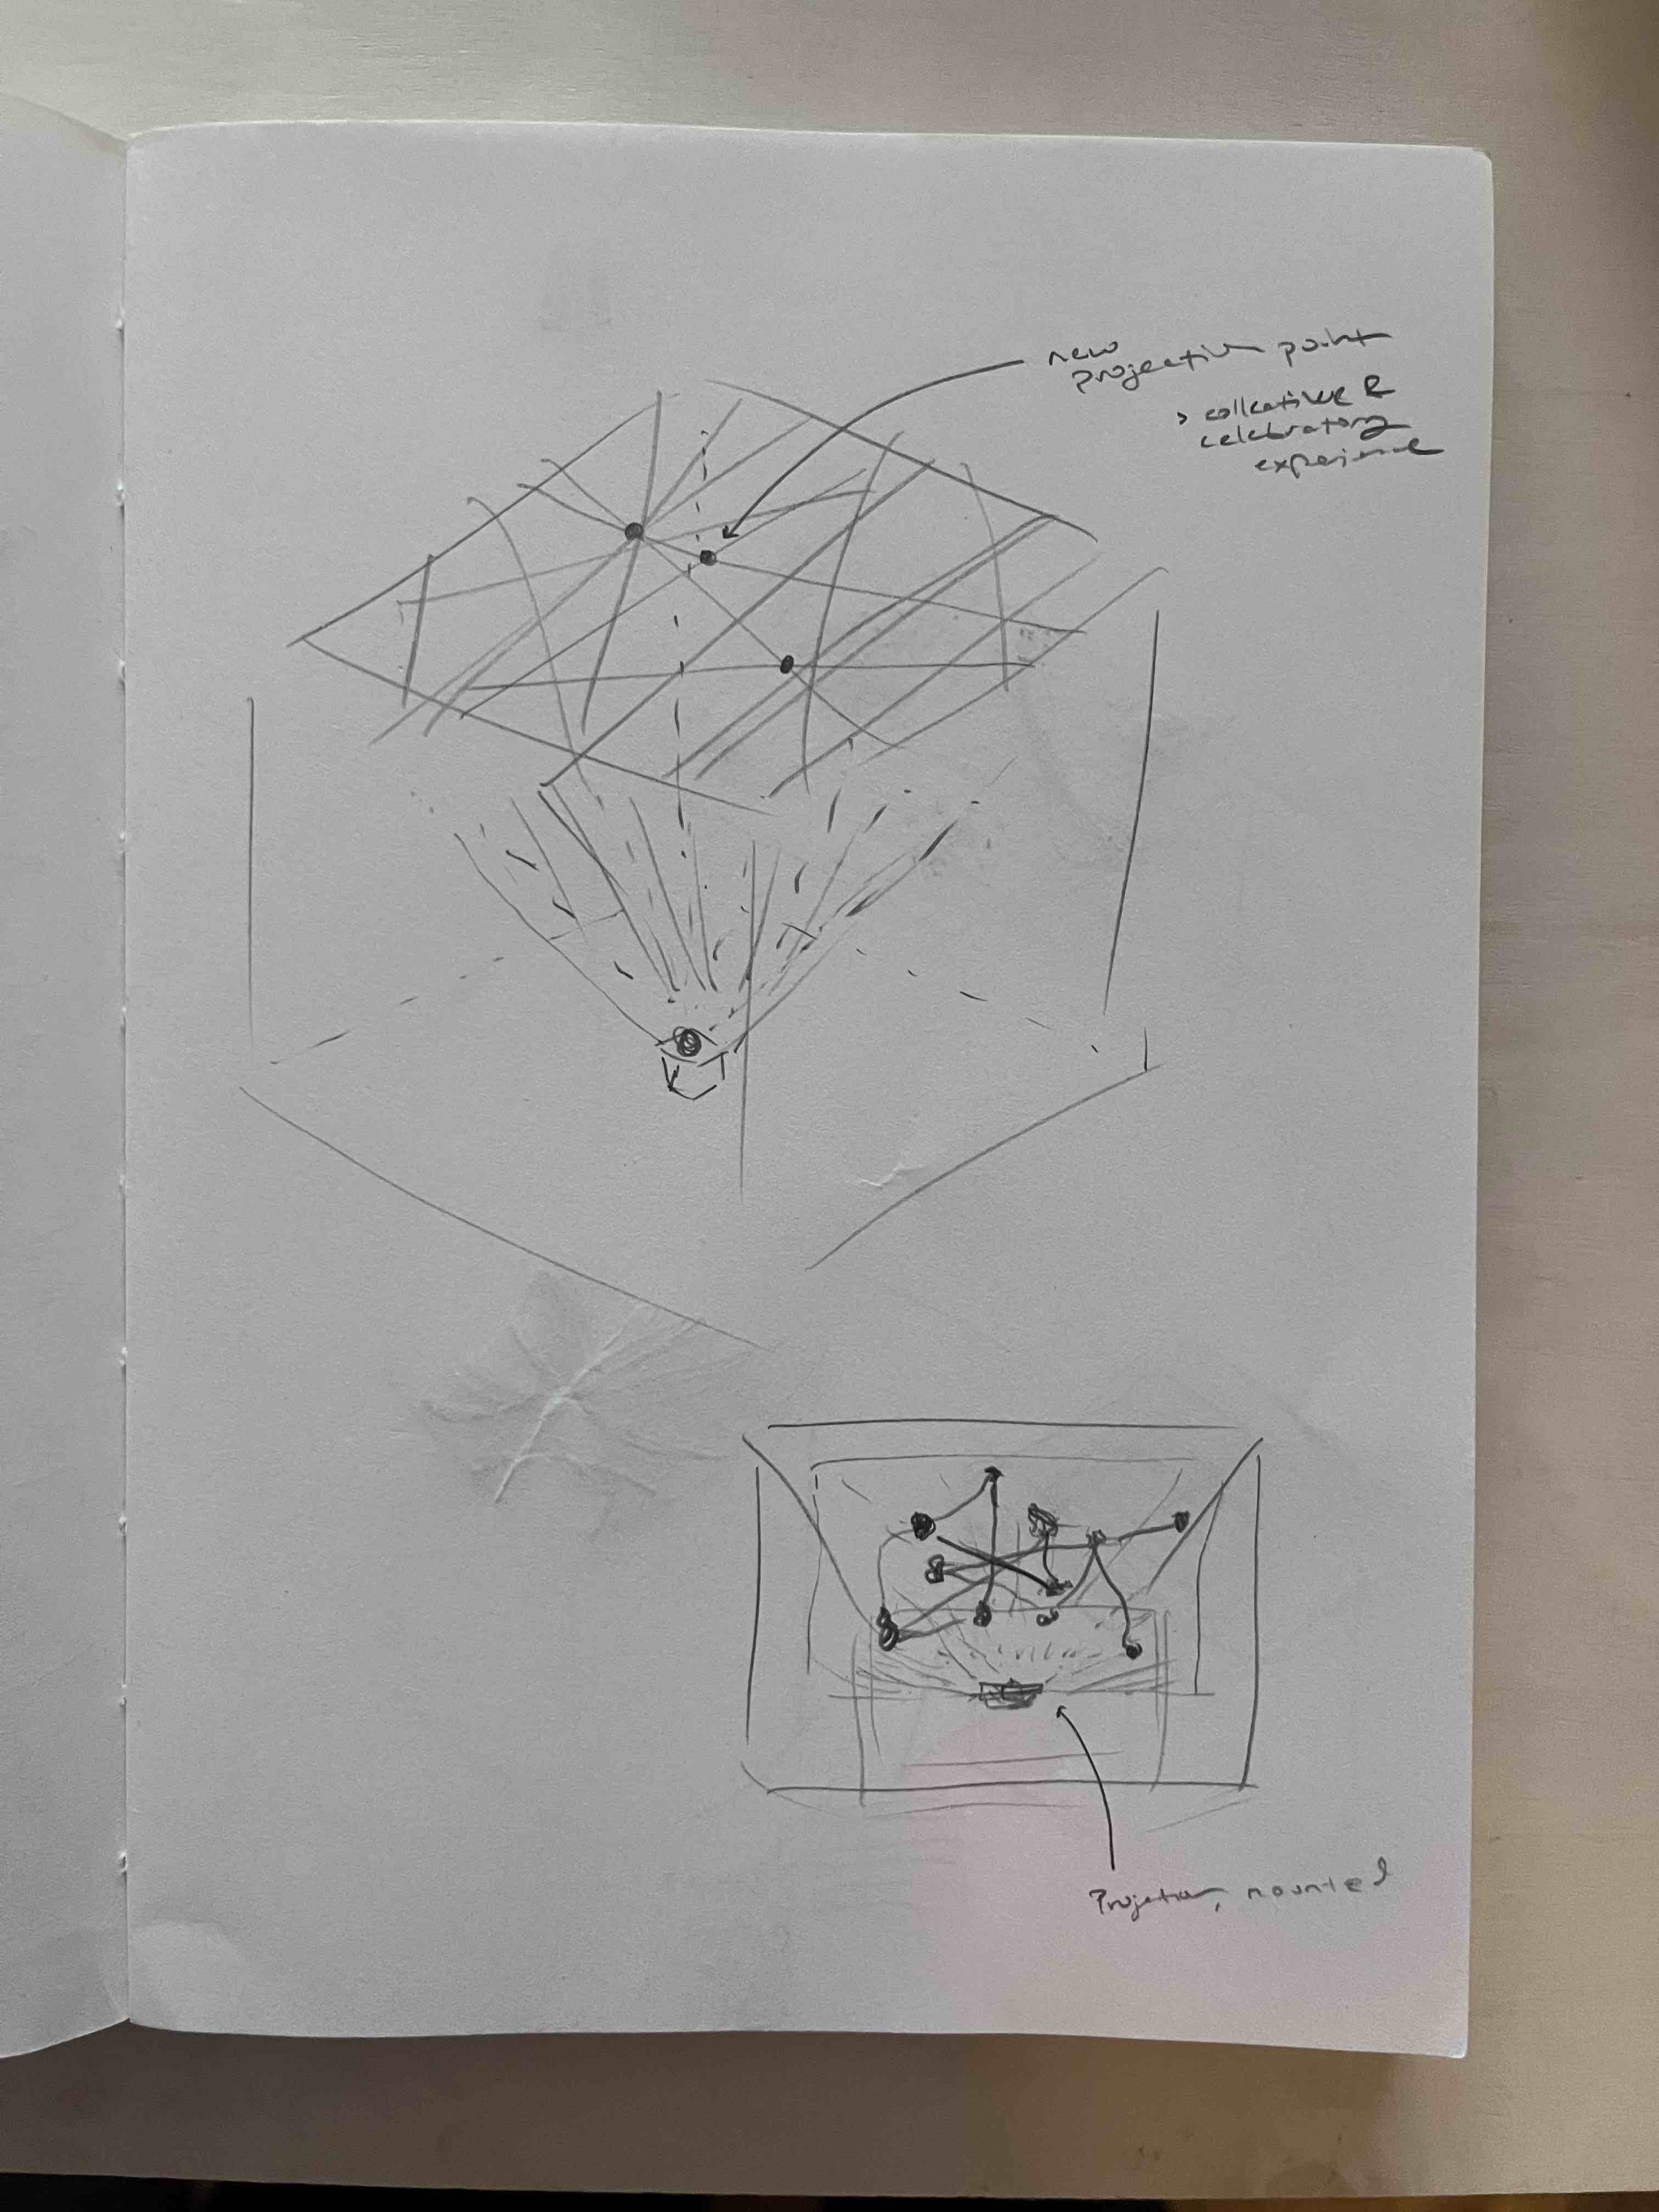 new
projection point
> collective &
celebratory
experience
Projector, mounted